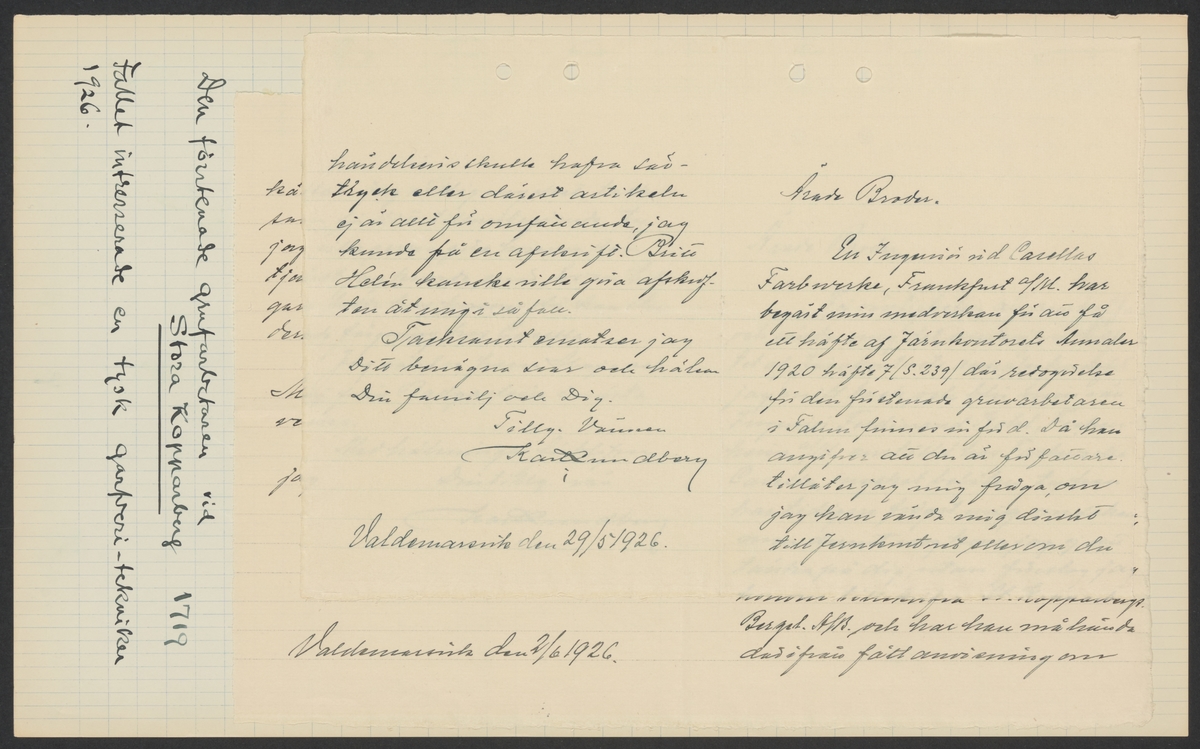 Den förstenade grufarbetaren vid
Stora Kopparberg 1719
Fallet intresserade en tysk garfveri-tekniker
1926.
Ärade Broder.
En Ingeniör vid Casellas
Farbwerke, Frankfurt a/M. har
begärt min medverkan för att få
ett häfte af Järnkontorets Annaler
1920 häfte 7 (S. 239) där redogörelse
för den förstenade gruvarbetaren
i Falun finnes införd. Då han
angifver att du är författare
tillåter jag mig fråga, om
jag kan vända mig direkt
till Jernkontoret eller om du
händelsevis skulle hafva sär-
tryck eller därest artikeln
ej är allt för omfattande, jag
kunde få en afskrift. Britt
Helén kanske ville göra afskrif-
ten åt mig i så fall.
Tacksamt emotser jag
Ditt benägna svar och hälsar
Din familj och Dig.
Tillg. Vännen
Karl Lundberg
Valdemarsvik den 29/5 1926.
Kopparbergs
Bergsl. A/B. och har han måhända
därifrån fått anvisning om
Valdemarsvik den 2/6 1926.